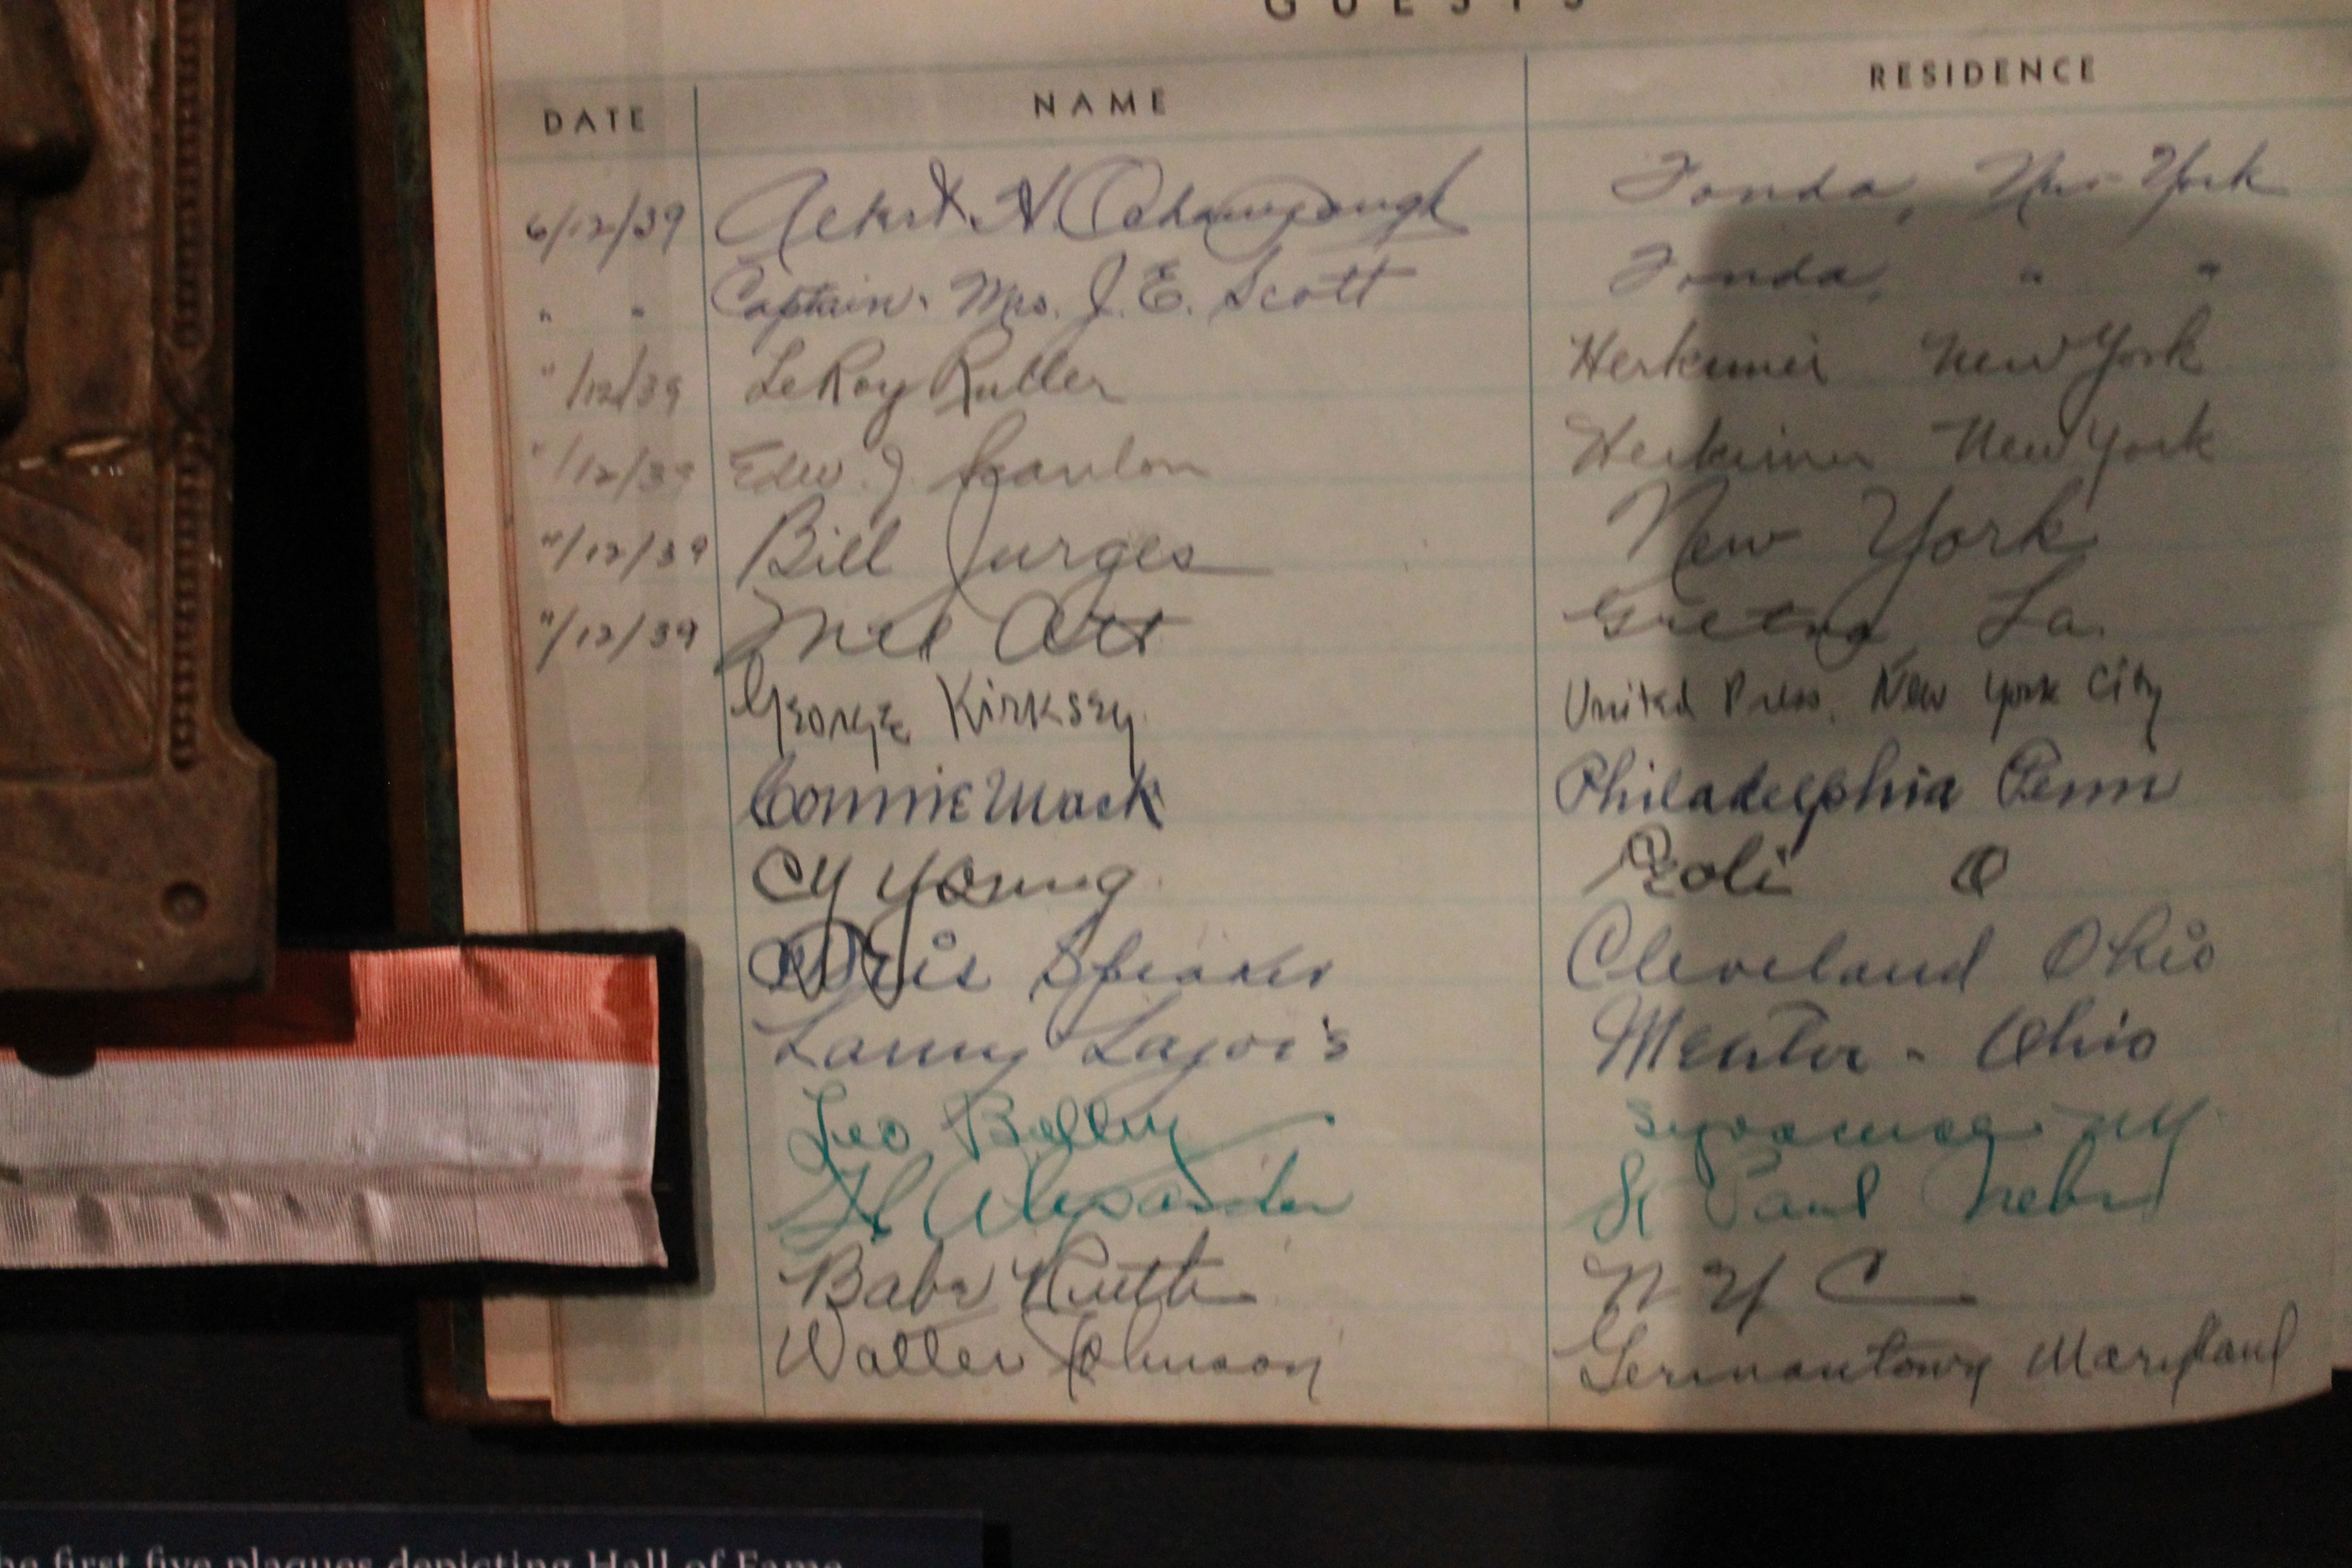 GUESTS
DATE NAME RESIDENCE
6/12/39 Fonda, New York
" " Captain. Mrs. J. E. Scott Fonda, " "
"/12/39 LeRoy Herkimer New York
"/12/39 Edw. J. Scanlon Herkimer New York
"/12/39 Bill Jurges New York
"/12/39 Mel Ott Gretna, La.
George Kirksey United Press, New York City
Connie Mack Philadelphia Penn
Cy Young Peoli O
Tris Speaker Cleveland Ohio
Larry Lajoi's Mentor - Ohio
Leo Syracuse NY
Alexander St Paul Nebr
Babe Ruth N Y C
Walter Johnson Germantown Maryland
he first five plaques depicting Hall of Fame